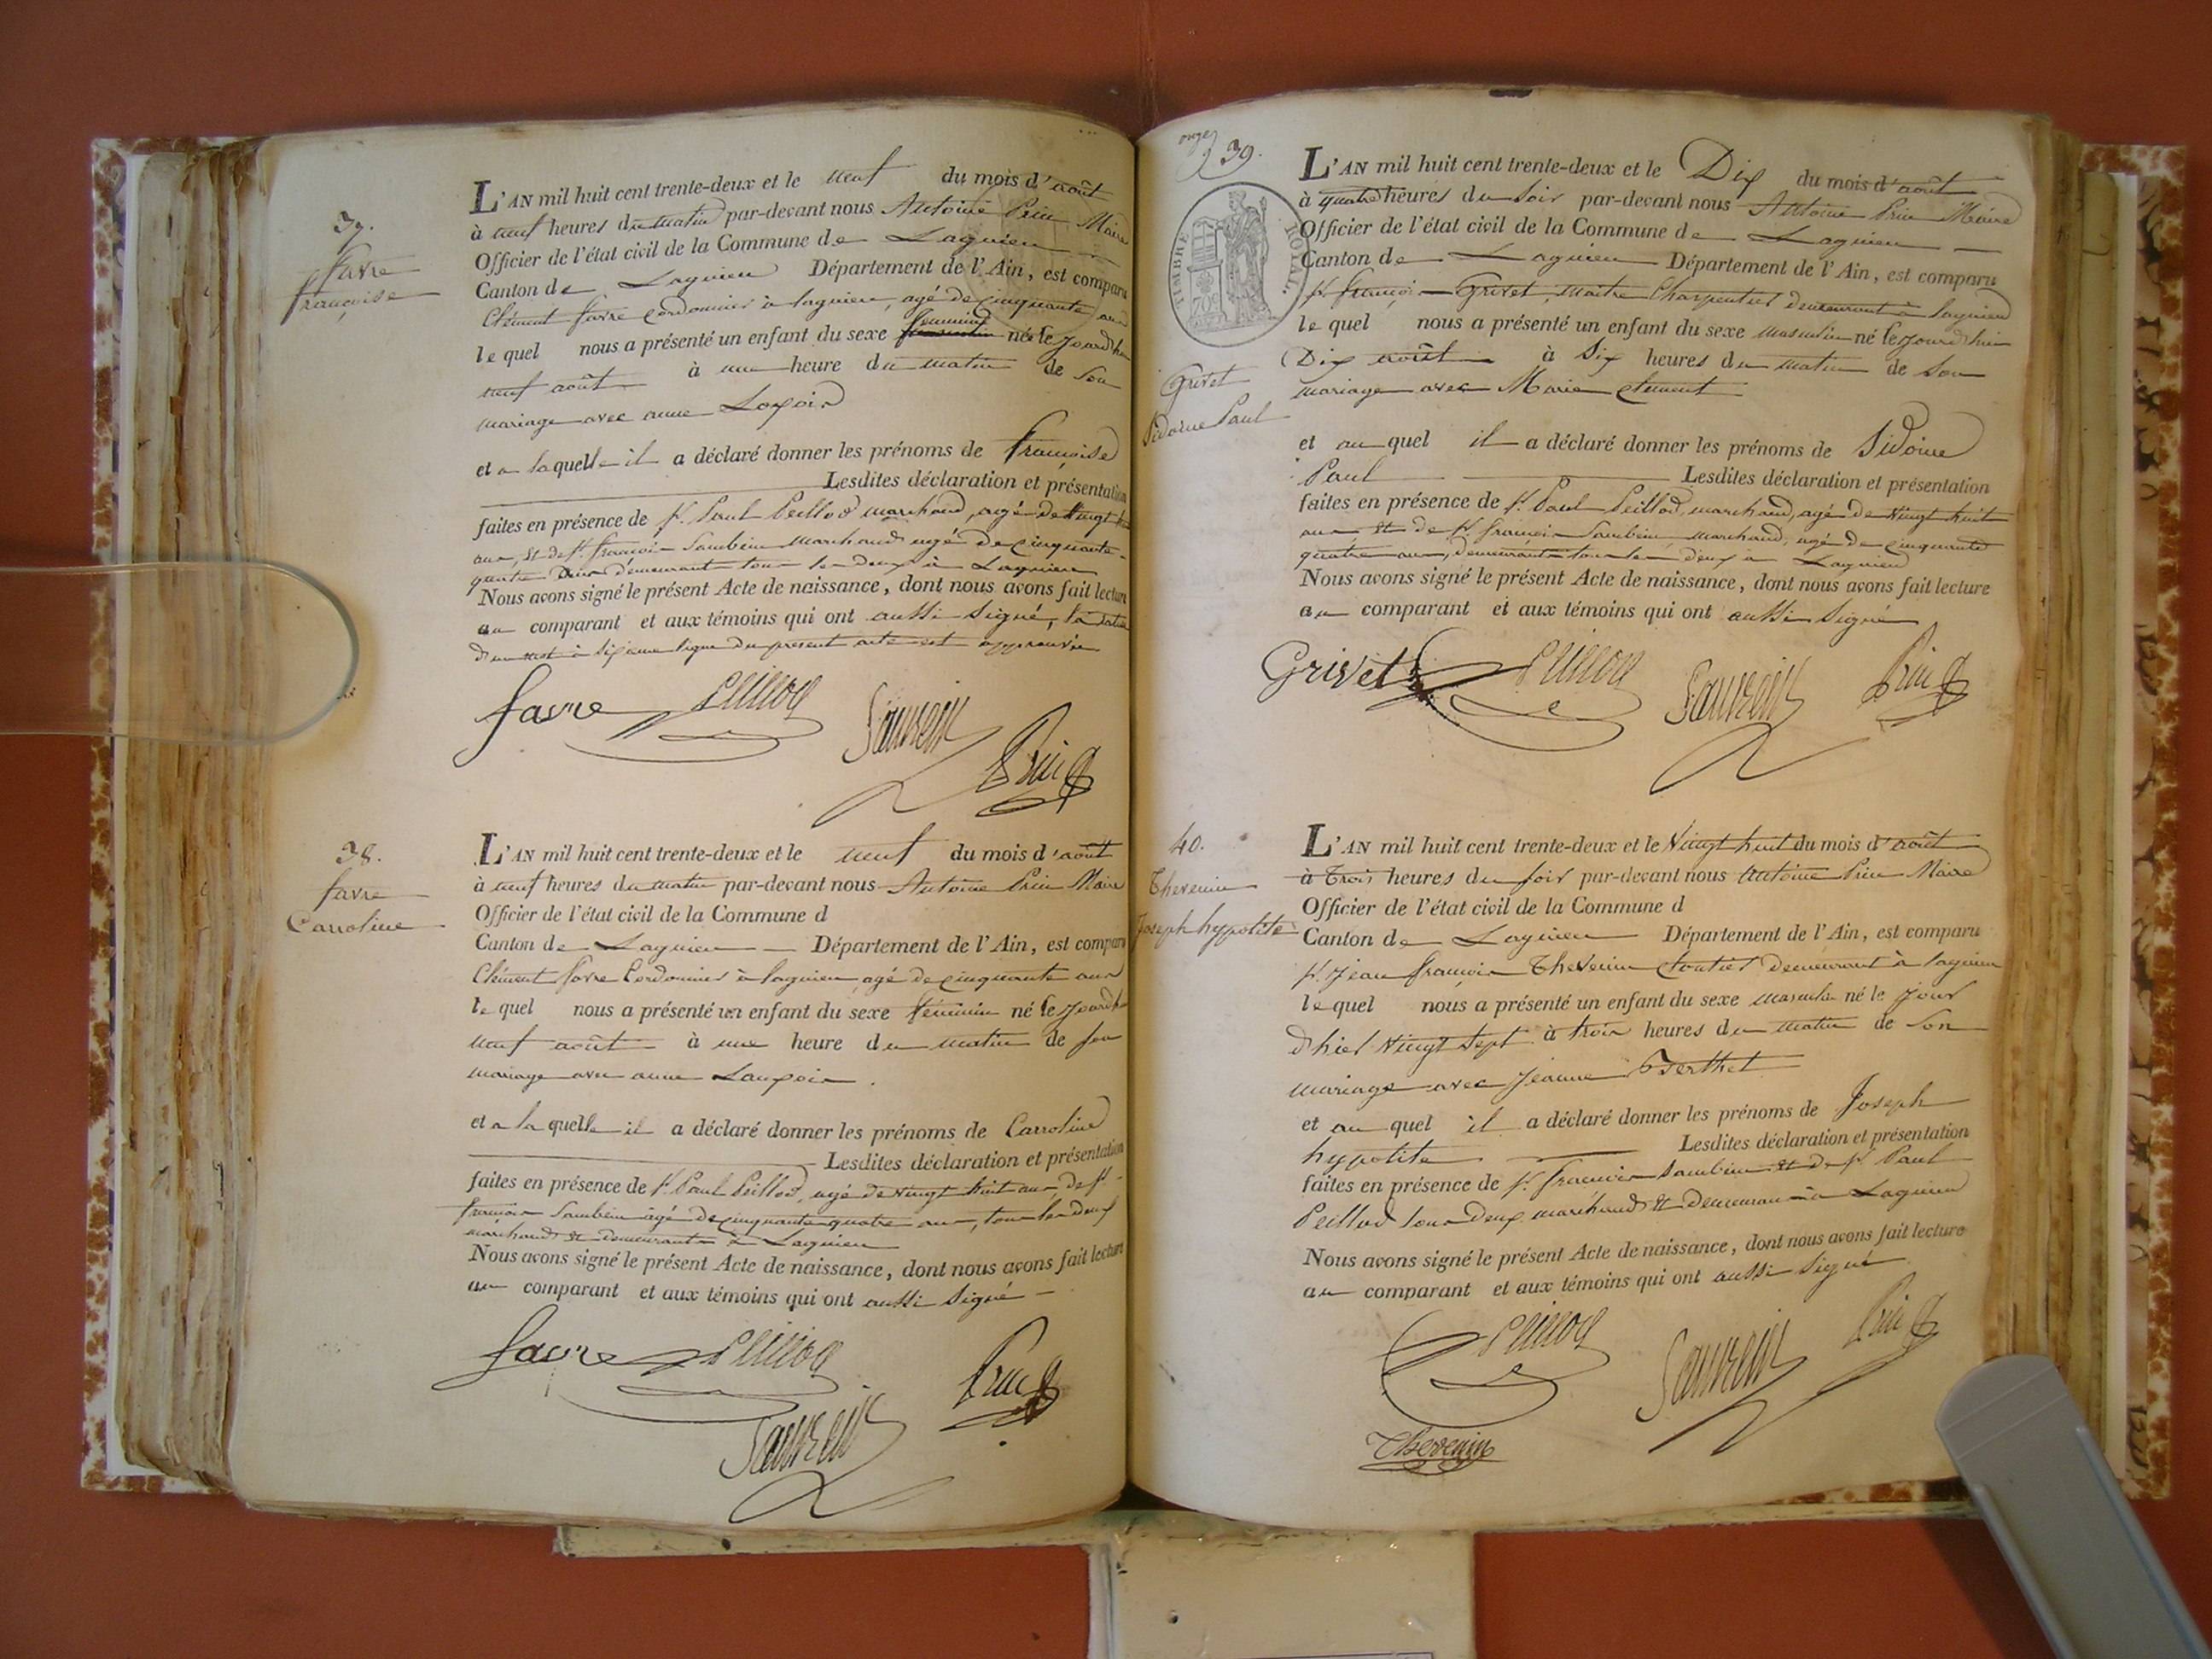 37.
favre
françoise
L'AN mil huit cent trente-deux et le neuf du mois d'août
à neuf heures du matin par-devant nous Antoine Prin Maire
Officier de l'état civil de la Commune de Lagnieu
Canton de Lagnieu Département de l'Ain, est comparu
Clément favre cordonnier à lagnieu, agé de cinquante ans
le quel nous a présenté un enfant du sexe féminin né le jourd'hui
neuf août à une heure du matin de son
mariage avec anne
et a laquelle il a déclaré donner les prénoms de françoise
Lesdites déclaration et présentation
faites en présence de sr. Paul Peillod marchand, agé de vingt huit
ans, et de sr. françois marchand agé de cinquante
quatre ans demeurant tous les deux à Lagnieu
Nous avons signé le présent Acte de naissance, dont nous avons fait lecture
au comparant et aux témoins qui ont aussi signé, la rature
d'un mot à sixième ligne du présent acte est approuvée
favre Peillod Prin
38.
favre
Carroline
L'AN mil huit cent trente-deux et le neuf du mois d'août
à neuf heures du matin par-devant nous Antoine Prin Maire
Officier de l'état civil de la Commune d
Canton de Lagnieu Département de l'Ain, est comparu
Clément favre Cordonnier à lagnieu agé de cinquante ans
le quel nous a présenté un enfant du sexe féminin né le jourd'hui
neuf août à une heure du matin de son
mariage avec anne
et a la quelle il a déclaré donner les prénoms de Carroline
Lesdites déclaration et présentation
faites en présence de sr. Paul Peillod, agé de vingt huit ans, de sr.
françois agé de cinquante quatre ans, tous les deux
marchands et demeurants à Lagnieu
Nous avons signé le présent Acte de naissance, dont nous avons fait lecture
au comparant et aux témoins qui ont aussi signé
favre Peillod Prin
onze
39.
TIMBRE ROYAL.
70c
Grivet
Sidoine Paul
L'AN mil huit cent trente-deux et le Dix du mois d'août
à quatre heures du soir par-devant nous Antoine Prin Maire
Officier de l'état civil de la Commune de Lagnieu
Canton de Lagnieu Département de l'Ain, est comparu
sr. françois Grivet, maître Charpentier demeurant à lagnieu
le quel nous a présenté un enfant du sexe masculin né le jourd'hui
Dix août à Six heures du matin de son
mariage avec Marie Clement
et au quel il a déclaré donner les prénoms de Sidoine
Paul Lesdites déclaration et présentation
faites en présence de sr. Paul Peillod, marchand, agé de vingt huit
ans et de sr. françois marchand, agé de cinquante
quatre ans, demeurant tous les deux à Lagnieu
Nous avons signé le présent Acte de naissance, dont nous avons fait lecture
au comparant et aux témoins qui ont aussi signé
Grivet Peillod Prin
40.
Thevenin
Joseph hypolite
L'AN mil huit cent trente-deux et le Vingt huit du mois d'août
à Trois heures du soir par-devant nous Antoine Prin Maire
Officier de l'état civil de la Commune d
Canton de Lagnieu Département de l'Ain, est comparu
sr. jean françois Thevenin cloutier demeurant à lagnieu
le quel nous a présenté un enfant du sexe masculin né le jour
d'hier vingt sept à trois heures du matin de son
mariage avec jeanne Berthet
et au quel il a déclaré donner les prénoms de Joseph
hypolite Lesdites déclaration et présentation
faites en présence de sr. françois et de sr. Paul
Peillod tous deux marchands et demeurant à Lagnieu
Nous avons signé le présent Acte de naissance, dont nous avons fait lecture
au comparant et aux témoins qui ont aussi signé
Peillod Prin
Thevenin